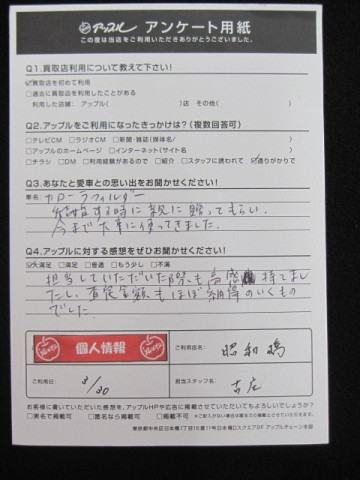 アップル アンケート用紙
この度は当店をご利用いただきありがとうございました。
Q1.買取店利用について教えて下さい!
☑買取店を初めて利用
□過去に買取店を利用したことがある
利用した店舗: アップル( )店 その他( )
Q2.アップルをご利用になったきっかけは?(複数回答可)
□テレビCM □ラジオCM □新聞・雑誌(媒体名/ )
□アップルのホームページ □インターネット(サイト名 )
□チラシ □DM □利用経験があるので □紹介 □スタッフに誘われて ☑通りがかりで
Q3.あなたと愛車との思い出をお聞かせください!
車名: カローラフィルダー
する時に親に贈ってもらい、
今まで大事に使ってきました。
Q4.アップルに対する感想をぜひお聞かせください!
☑大満足 □満足 □普通 □もう少し □不満
担当していただいた際も高感 持てまし
たし、査定金額もほぼ納得のいくもの
でした。
個人情報
ご利用店名:
昭和橋
ご利用日:
3/30
担当スタッフ名:
古庄
お客様に書いていただいた感想を、アップルHPや広告に掲載させていただいてもよろしいでしょうか?
□実名で掲載可 □匿名なら掲載可 □掲載不可